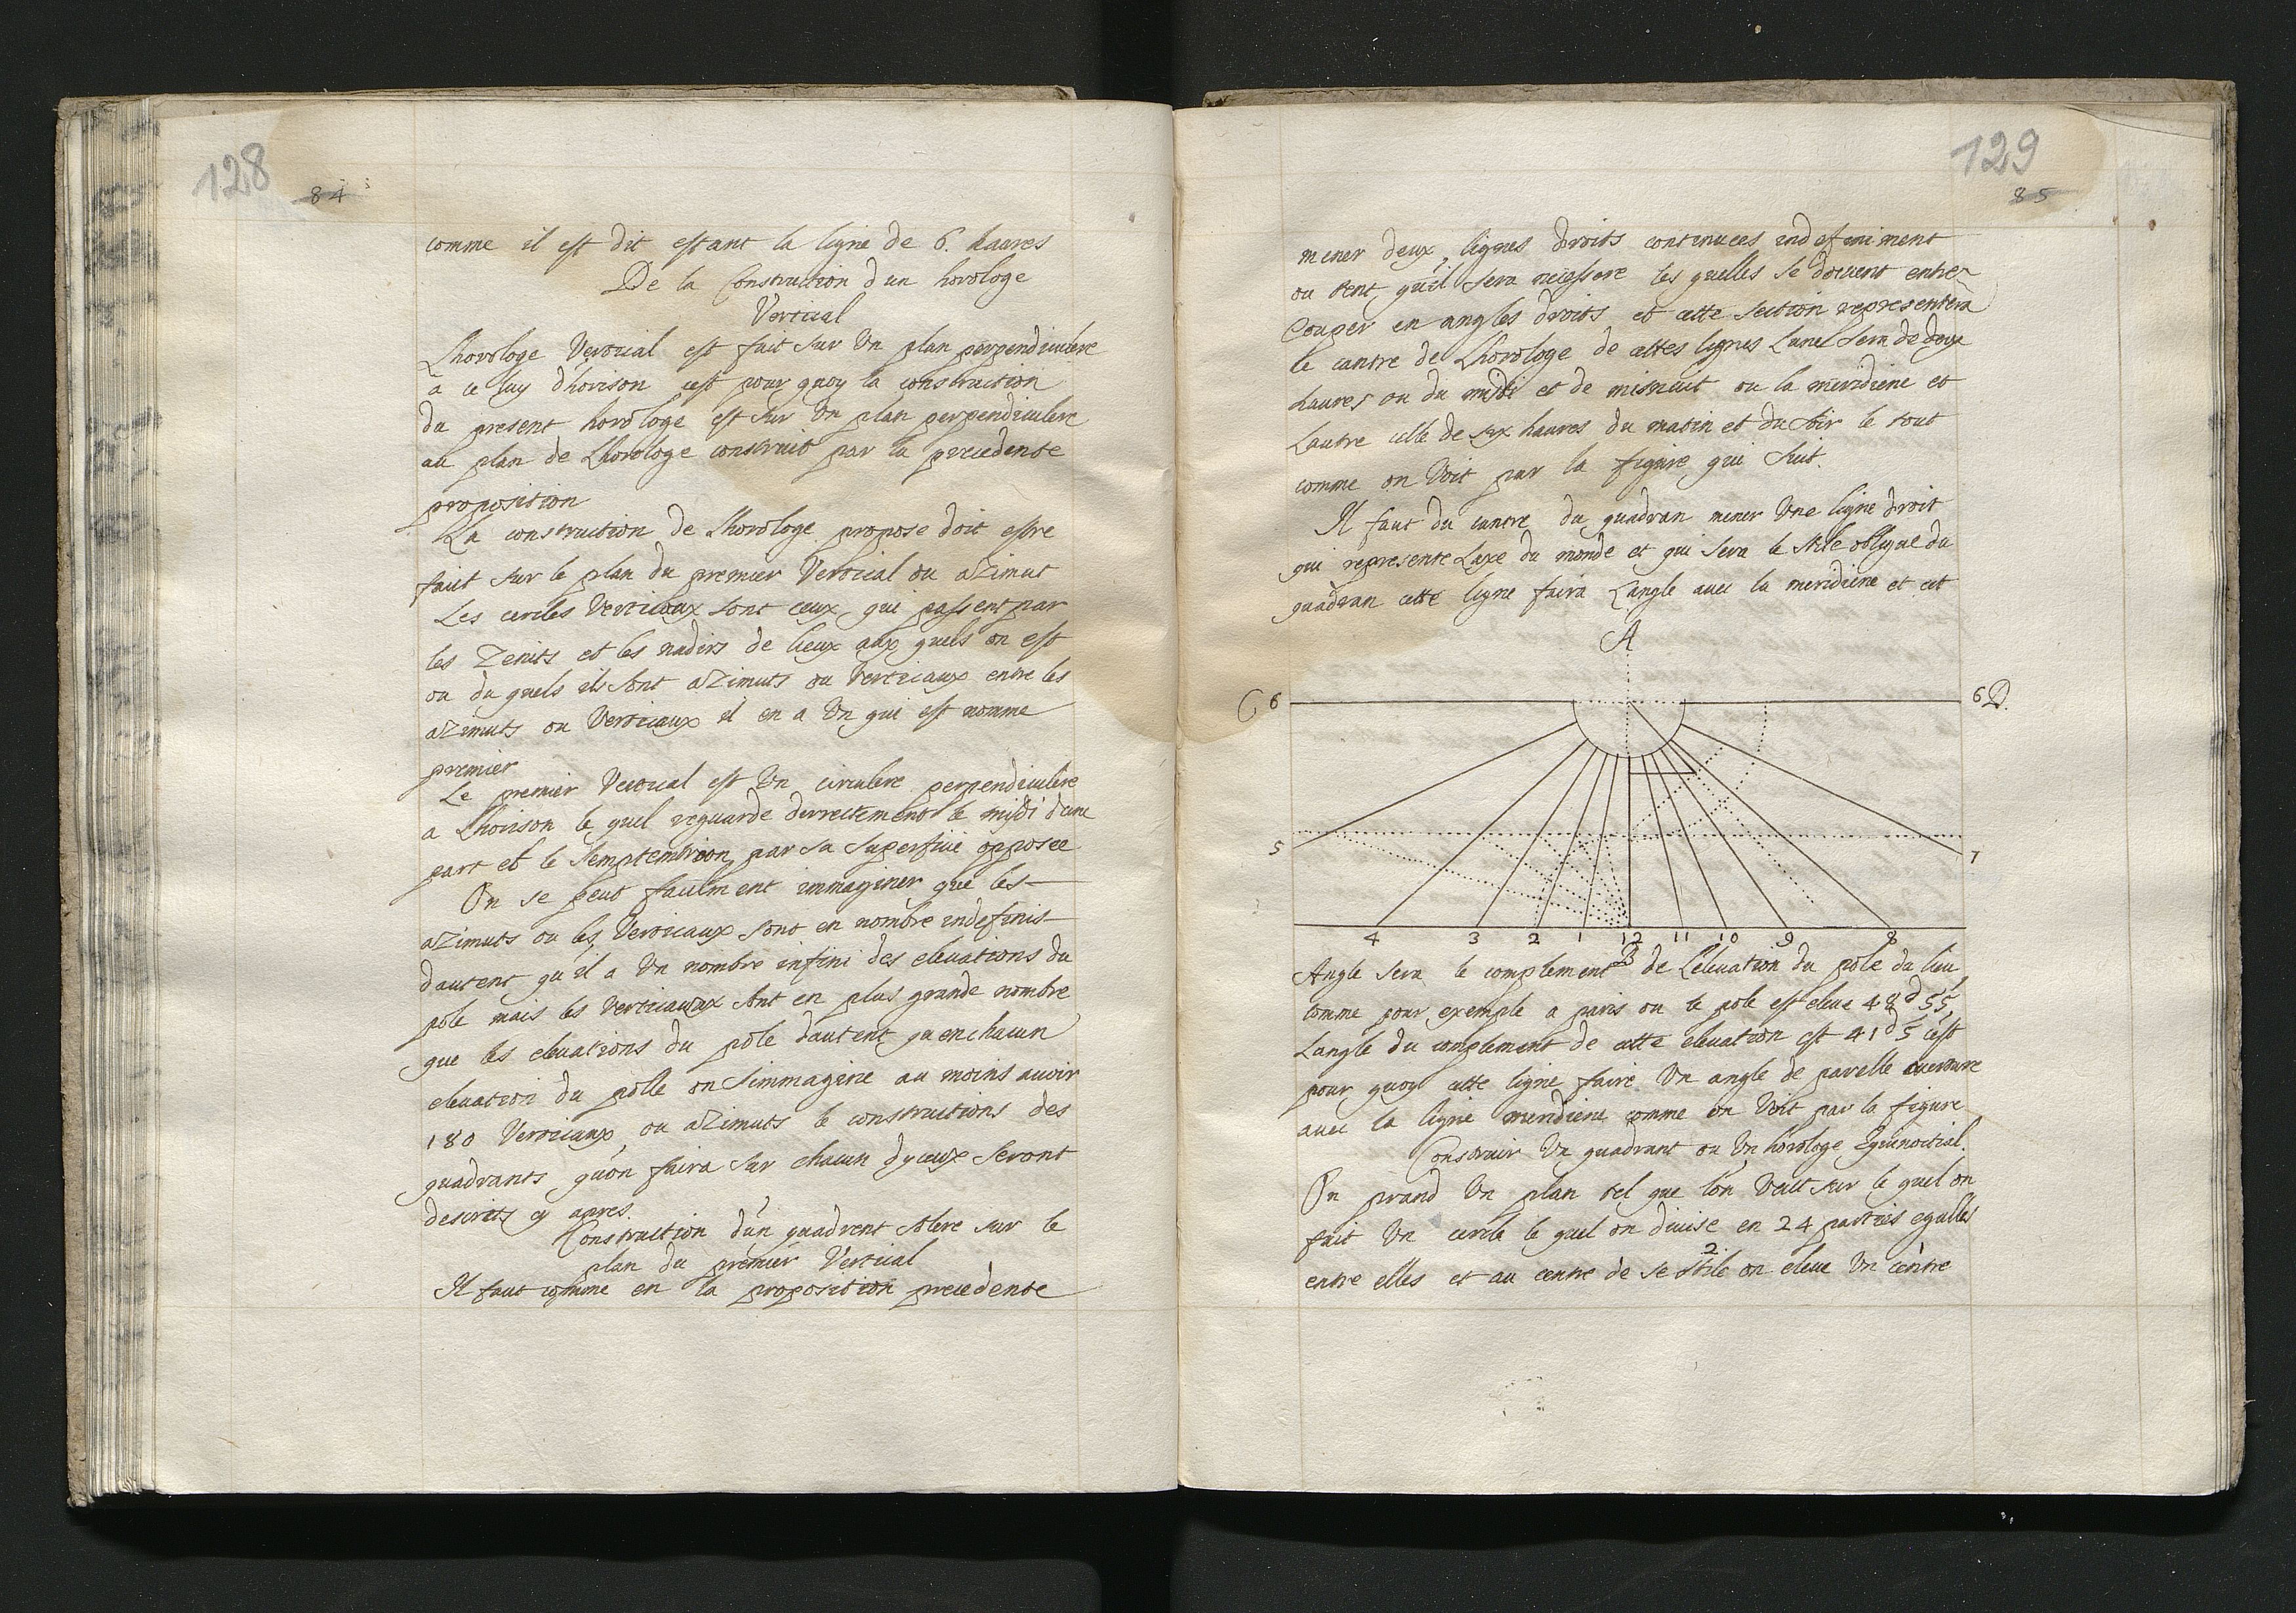 128
84
comme il est dit estant la ligne de 6. haures
De la Construction dun horologe
Vertical
Lhorologe Vertical est fait sur Un plan perpendiculere
a ce luy d'horison cest pour quoy la construction
du present horologe est sur Un plan perpendiculere
au plan de Lhorologe construit par la precedente
proposition
La construction de Lhorologe propose doit estre
faict sur le plan du premier Vertical ou aZimut
Les cercles Verticaux sont ceux qui passent par
les Zenits et les nadirs de lieux aux quels on est
ou du quels ils sont aZimuts ou Verticaux entre les
aZimuts ou Verticaux il en a Un qui est nomme
premier
Le premier Vertical est Un circulere perpendiculere
a Lhorison le quel reguarde dirrectement le midi dune
part et le Semptentrion par sa superficie opposee
On se peut facilment immaginer que les
aZimuts ou les Verticaux sont en nombre indefinis
dautent qu'il a Un nombre infini des eleuations du
pole mais les Verticauax sont en plus grande nombre
que les eleuations du pole dautent qu en chacun
eleuation du polle on simmagine au moins auoir
180 Verticaux ou aZimuts le constructions des
quadrants qu'on faira sur chacun dyceux seront
descrits cy apres.
Construction d'un quadrent solere sur le
plan du premier Vertical
Il faut comme en la proposition precedente
129
85
mener deux lignes droits continuees indefiniment
ou tent qu'il sera necessere les quelles se doiuent entre
Couper en angles droits et cette section representera
le cantre de Lhorologe de cettes lignes Lune sera de douze
haures ou du midi et de minuit ou la meridiene et
Lautre celle de six haures du matin et du soir le tout
comme on Voit par la figure qui suit.
Il faut du cantre du quadran mener Une ligne droit
qui represente Laxe du monde et qui sera le stile oblique du
quadran cette ligne faira Langle auec la meridiene et cet
A
C 6
6 D.
5
7
4 3 2 1 12 11 10 9 8
B
Angle sera le complement de Leleuation du pole du lieu
comme pour exemple a paris ou le pole est eleue 48d 55,
Langle du complement de cette eleuation est 41d 5 cest
pour quoy cette ligne faire Un angle de parelle ouerture
auec la ligne meridiene comme on Voit par la figure
Construir Un quadrant ou Un horologe Equinoctial.
On prand Un plan tel que lon Veut sur le quel on
fait Un cercle le quel on diuise en 24 parties egalles
2
entre elles et au centre de se stile on eleue Un centre